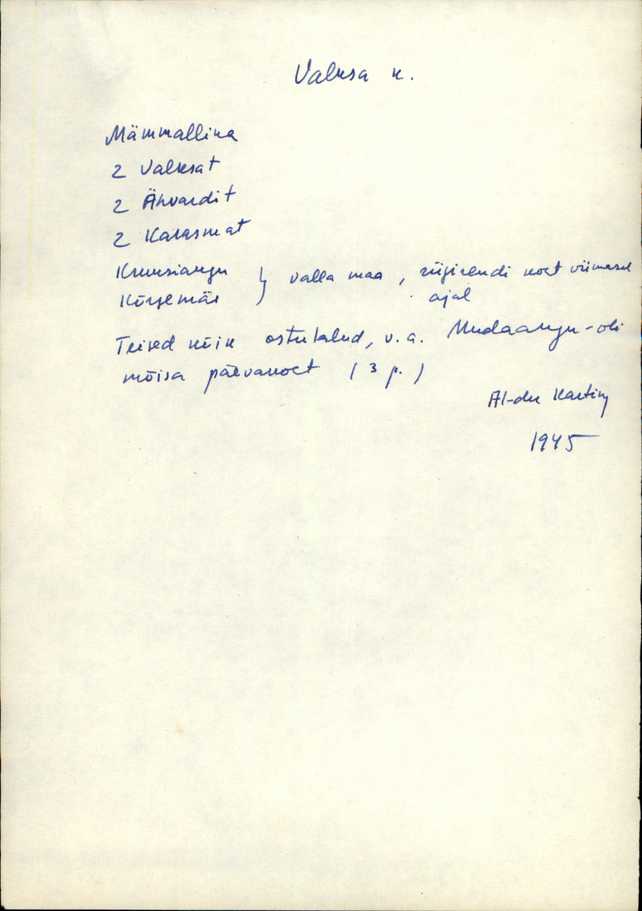 Valksa k.
Mämmallika
2 Valksat
2 Ähvardit
2 Karasmat
Kruusiaugu } valla maa, riigirendi koht viimasel
Kõrgemäe ajal
Teised kõik ostutalud, v.a. Mudaaugu - oli
mõisa päevakoht (3 p.)
Al-der
1945